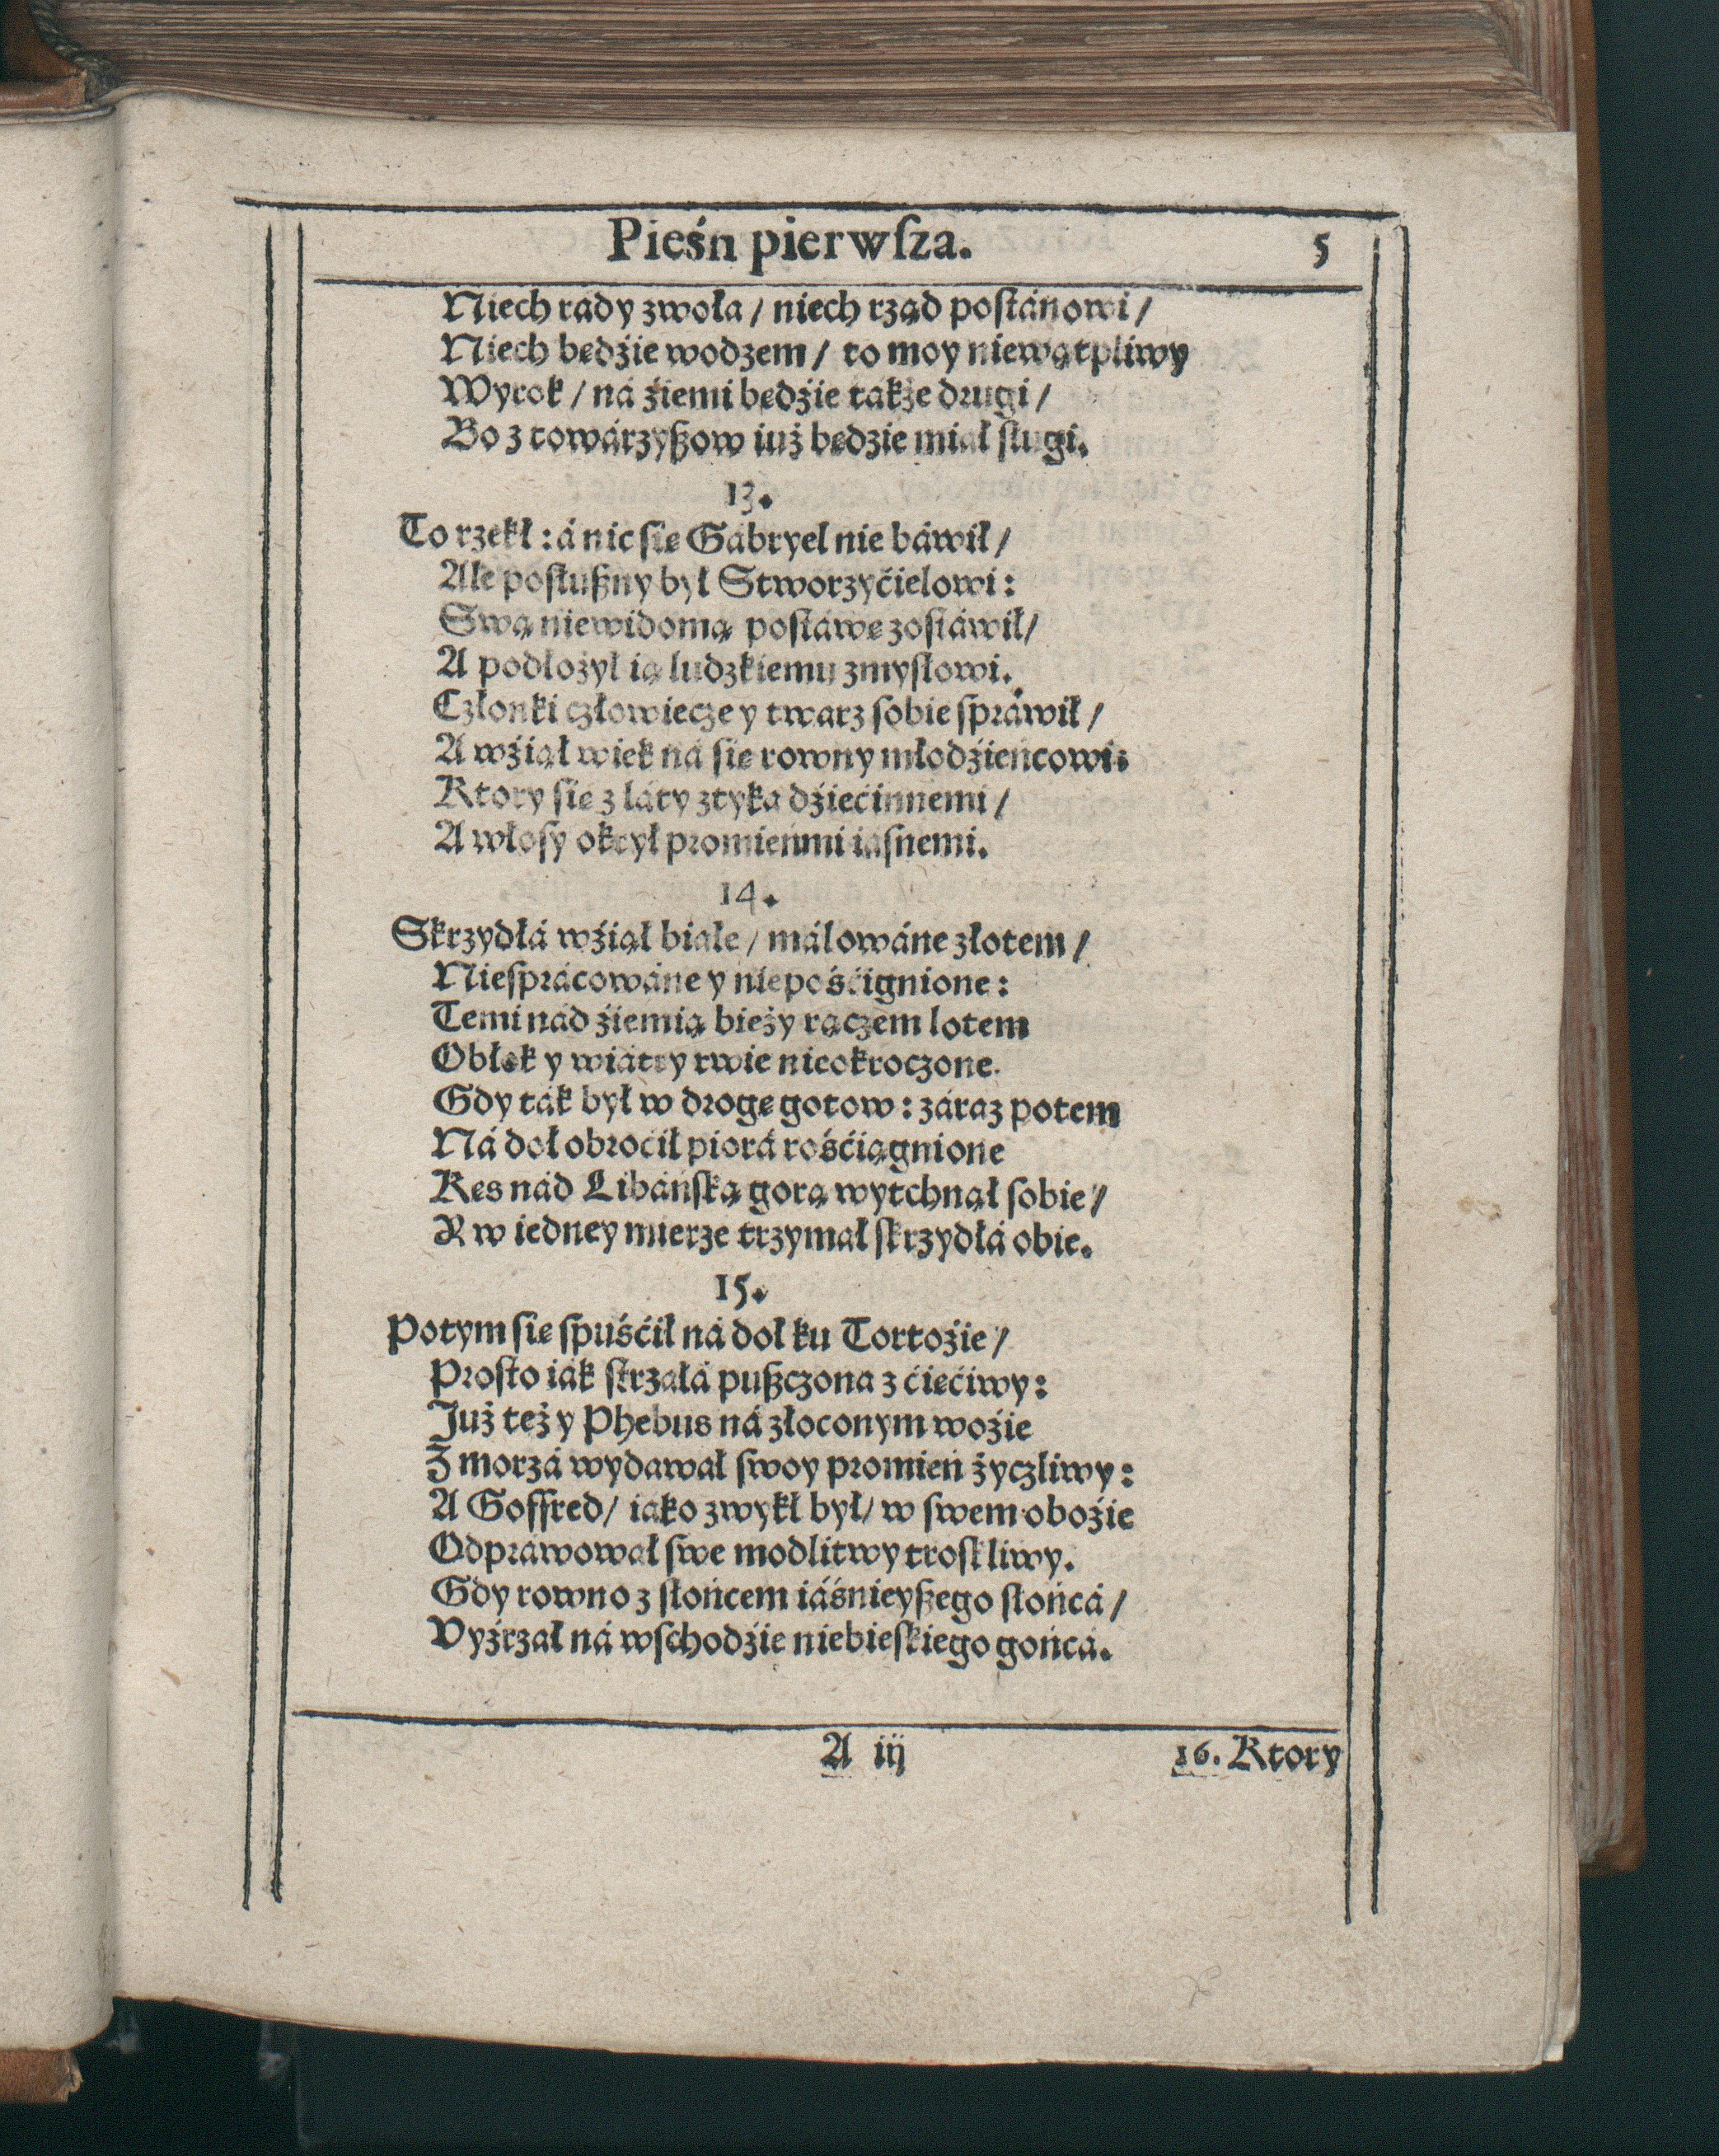 Pieśń pierwſza. 5
Niech rády zwoła / niech rząd poſtánowi /
Niech będźie wodzem / to moy niewątpliwy
Wyrok / ná źiemi będźie tákże drugi /
Bo z towárzyßow iuż będzie miał ſługi.
13.
To rzekł : á nic ſie Gábryel nie báwił /
Ale poſłußny był Stworzyćielowi :
Swą niewidomą poſtáwę zoſtáwił /
A podłożył ią ludzkiemu zmyſłowi.
Członki człowiecze y twarz ſobie ſpráwił /
A wźiął wiek ná ſię rowny młodźieńcowi:
Ktory ſie z láty ztyka dźiećinnemi /
A włoſy okrył promieńmi iáſnemi.
14.
Skrzydłá wźiął białe / málowáne złotem /
Nieſprácowáne y niepośćignione :
Temi nád źiemią bieży rączem lotem
Obłok y wiátry rwie nieokroczone.
Gdy ták był w drogę gotow : záraz potem
Ná doł obroćił piorá rośćiągnione
Kęs nád Libáńſką gorą wytchnął ſobie /
R w iedney mierze trzymał ſkrzydłá obie.
15.
Potym ſie ſpuśćił ná doł ku Tortoźie /
Proſto iák ſtrzałá pußczona z ćięćiwy :
Już też y Phebus ná złoconym woźie
Z morzá wydawał ſwoy promień życzliwy :
A Goffred / iáko zwykł był / w ſwem oboźie
Odpráwował ſwe modlitwy troſkliwy.
Gdy rowno z ſłońcem iáśnieyßego ſłońcá /
Vyźrzał ná wſchodźie niebieſkiego gońcá.
A iij 16. Ktory